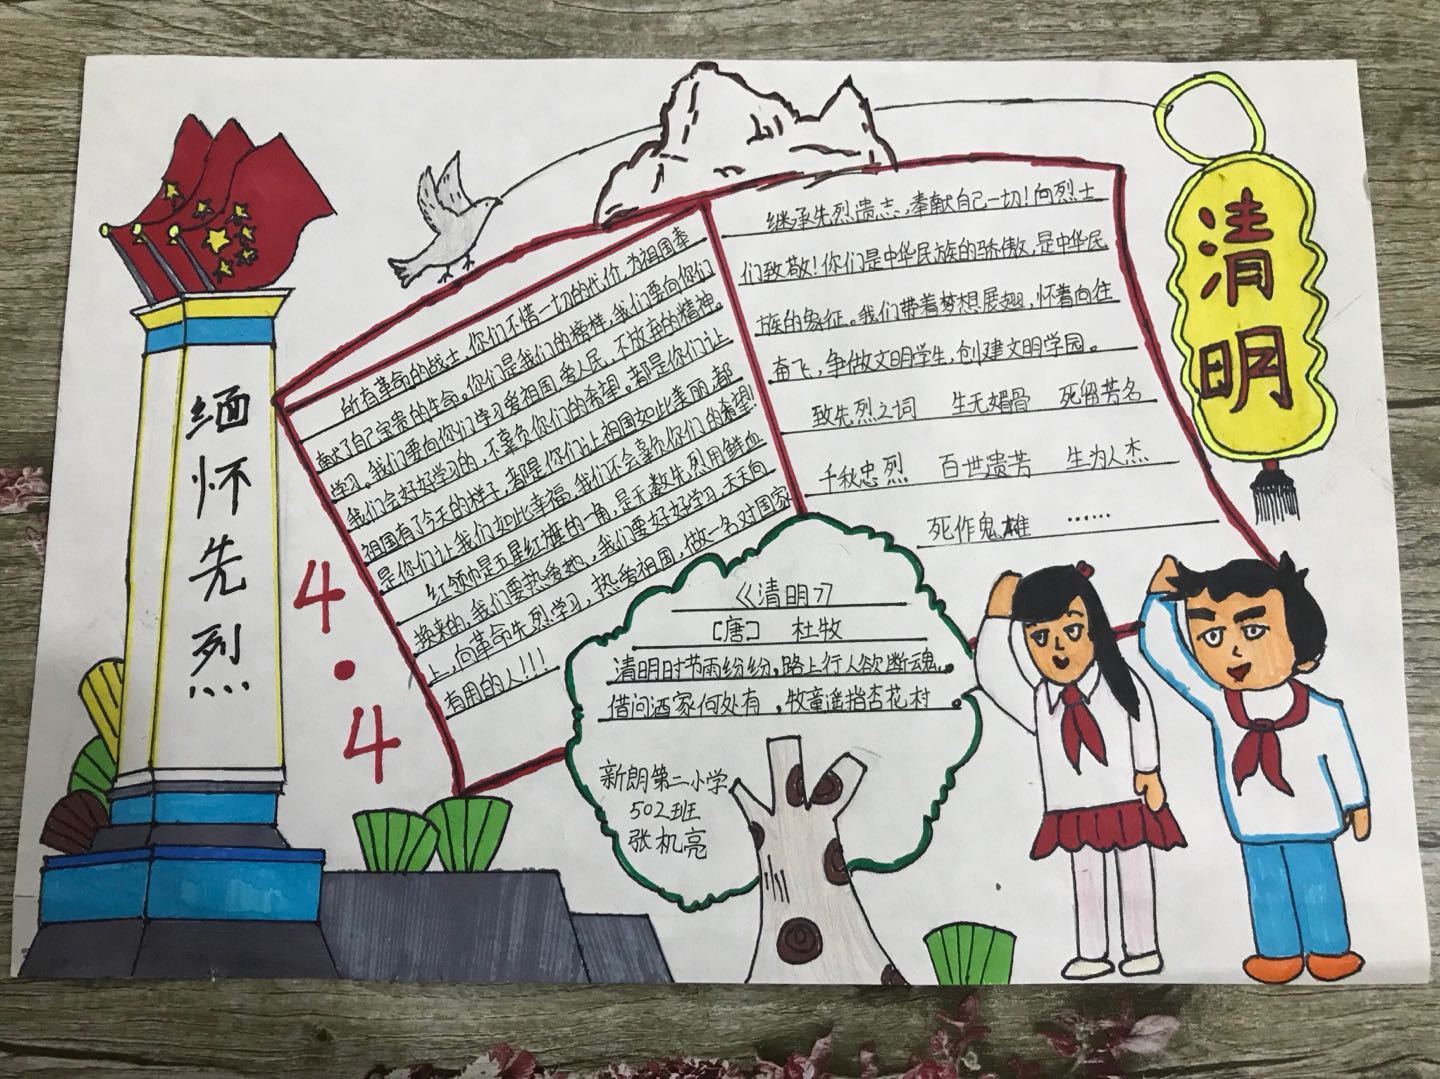 缅怀先烈
4·4
所有革命的战士，你们不惜一切的代价，为祖国奉
献了自己宝贵的生命。你们是我们的榜样，我们要向你们
学习。我们要向你们学习爱祖国，爱人民，不放弃的精神。
我们会好好学习的，不辜负你们的希望。都是你们让
祖国有了今天的样子，都是你们让祖国如此美丽，都
是你们让我们如此幸福，我们不会辜负你们的希望！
红领巾是五星红旗的一角，是无数先烈用鲜血
换来的，我们要热爱她，我们要好好学习，天天向
上，向革命先烈学习，热爱祖国，做一名对国家
有用的人！！！
继承先烈遗志，奉献自己一切！向烈士
们致敬！你们是中华民族的骄傲，是中华民
族的象征。我们带着梦想展翅，怀着向往
奋飞，争做文明学生，创建文明学园。
致先烈之词 生无媚骨 死留芳名
千秋忠烈 百世遗芳 生为人杰
死作鬼雄 ……
清明
《清明》
[唐] 杜牧
清明时节雨纷纷，路上行人欲断魂。
借问酒家何处有，牧童遥指杏花村。
新朗第二小学
502班
张机亮